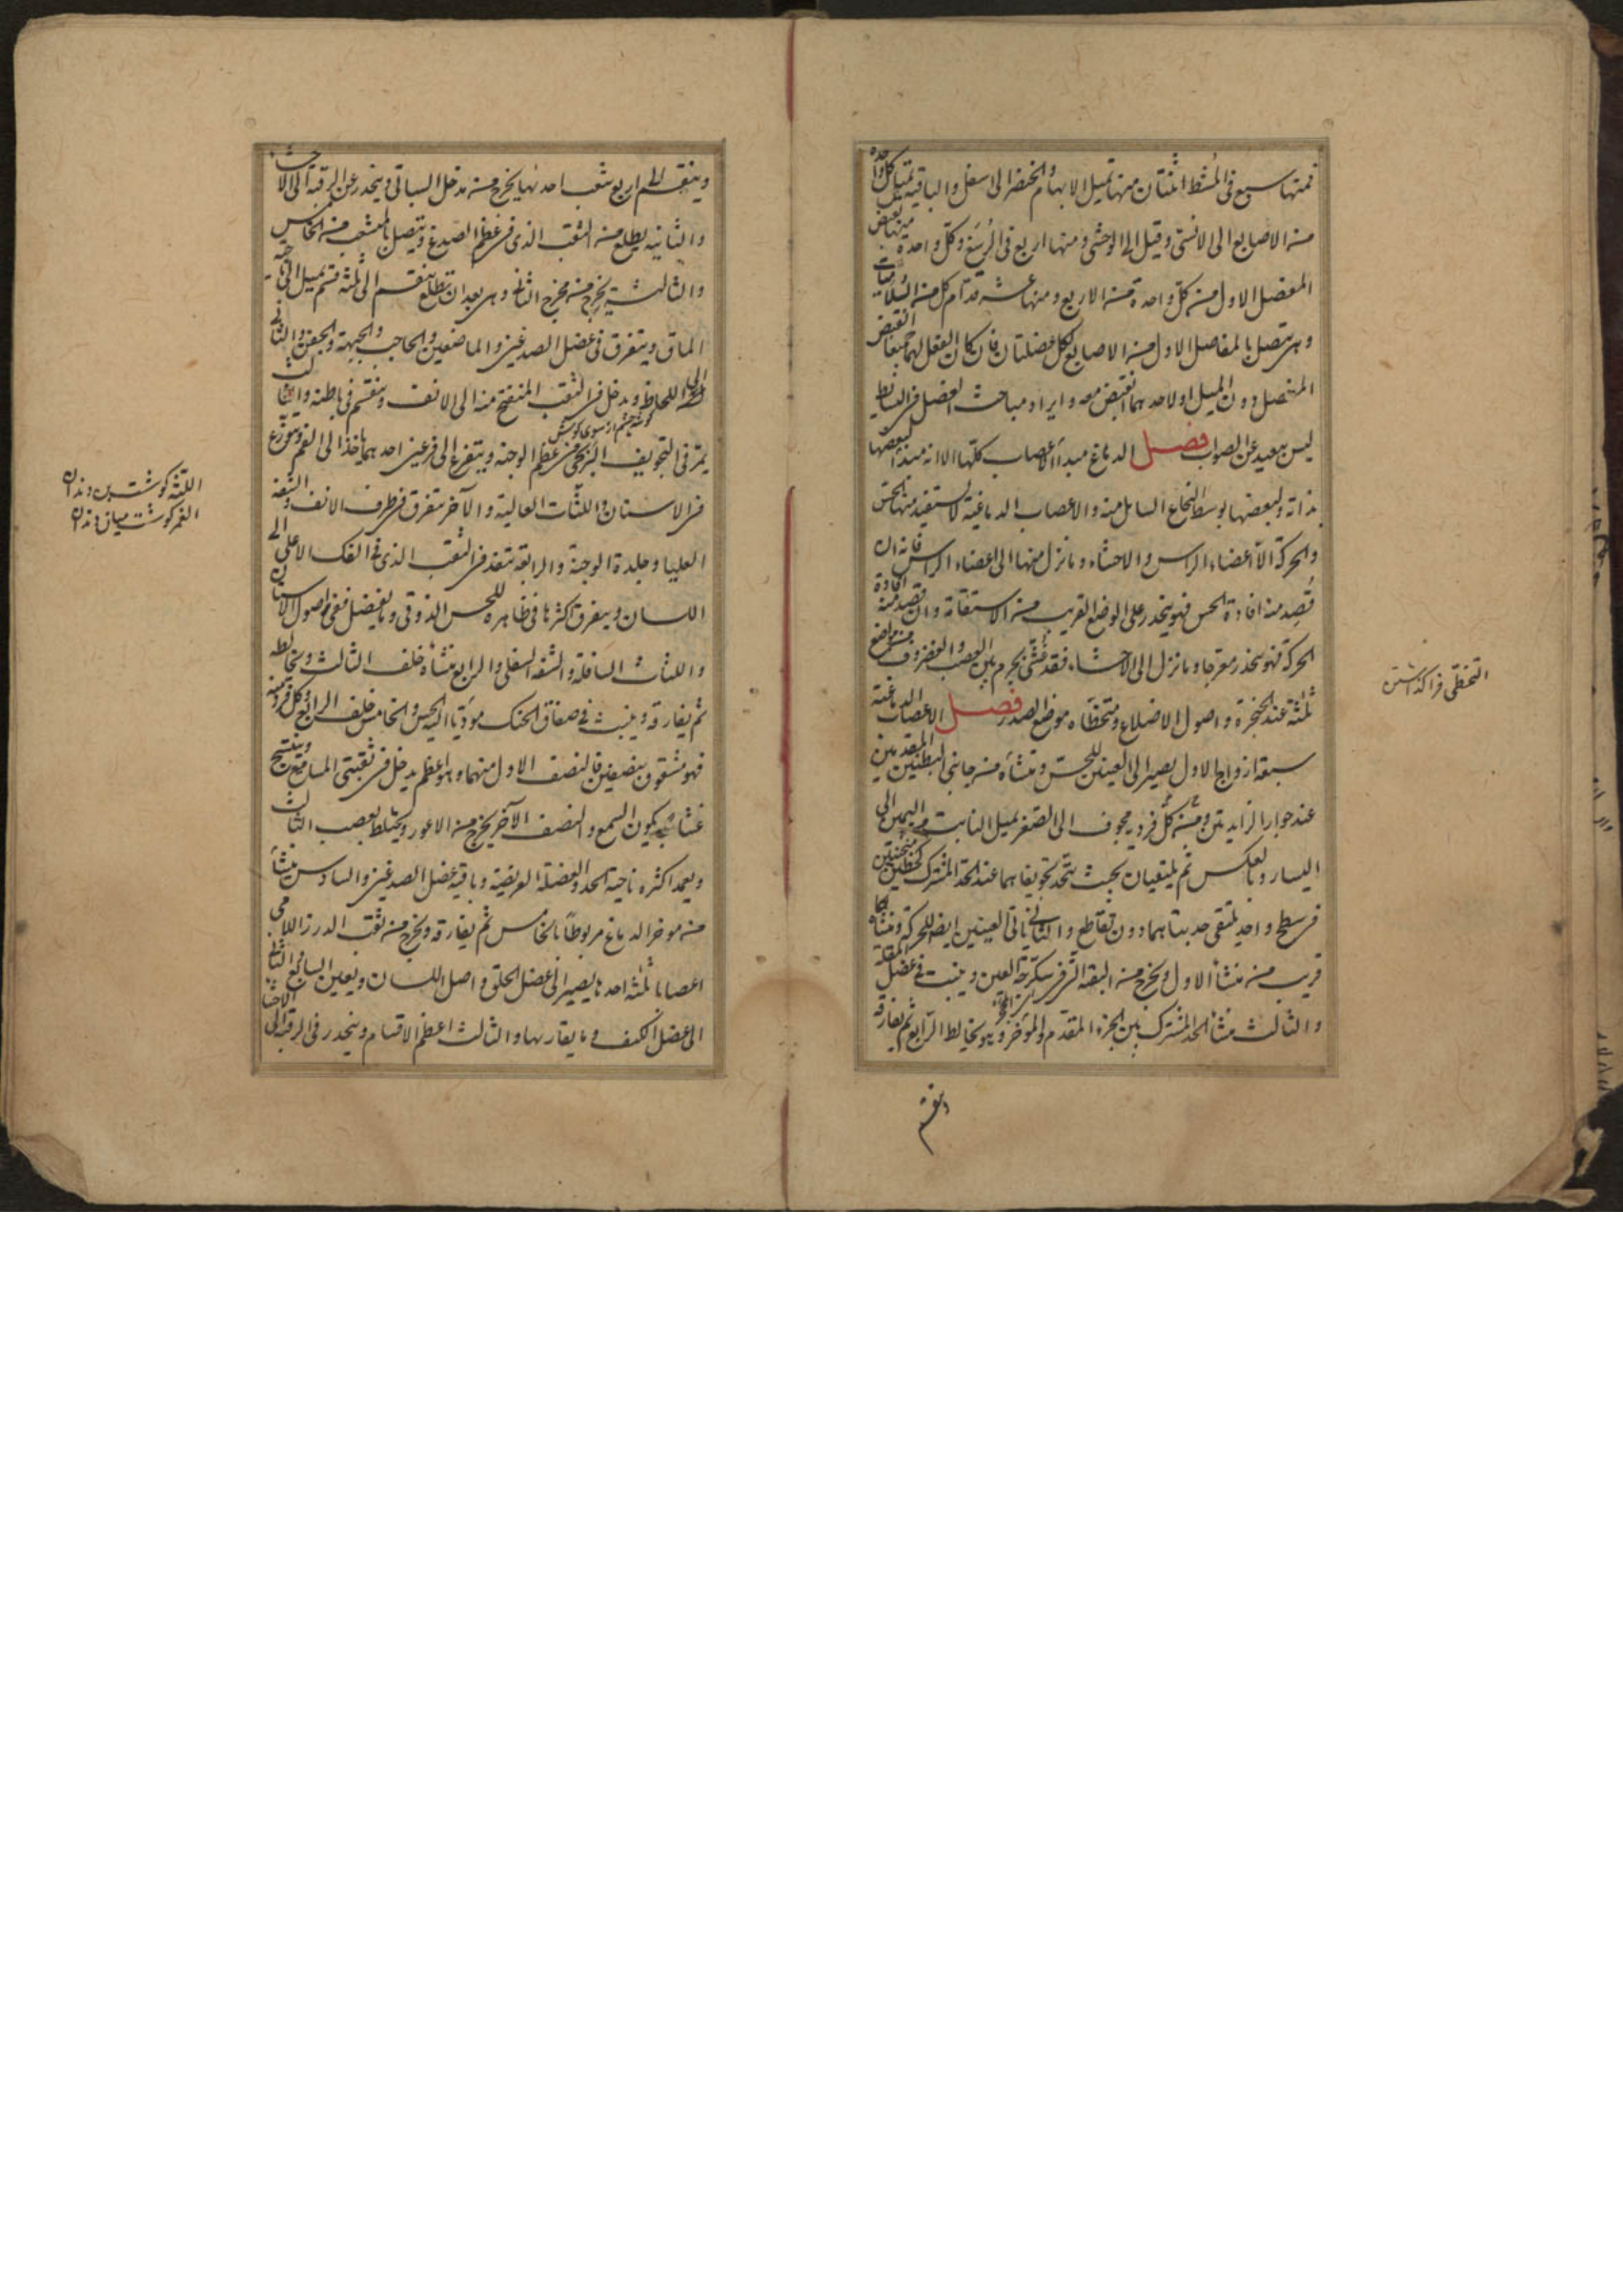 فمنها سبع فى المشط اثنتان منها تميل الابهام والخنصر الى اسفل والباقية تميل كل واحدة
من الاصابع الى الانسى وقيل الى الوحشى ومنها اربع فى الرسغ وكل واحدة منها تقبض
المفصل الاول من كل واحدة من الاربع ومنها عشر قدام كل من السلاميات
وهى تتصل بالمفاصل الاول من الاصابع لكل عضلتان فان كان الفعل لهما جميعا انقبض
المفصل دون الميل او لاحدهما انقبض معه وايراد مباحث العضل فى البسائط
ليس ببعيد عن الصواب فصل الدماغ مبدأ الاعصاب كلها الا انه مبدأ لبعضها
بذاته ولبعضها بوسط النخاع السايل منه والاعصاب الدماغية لا تستفيد منها الحس
والحركة الا اعضاء الراس والاحشاء وما نزل منها الى اعضاء الراس فانه ان
قصد منه افادة الحس فهو ينحدر على الوضع القريب من الاستقامة وان قصد منه افادة
الحركة فهو ينحدر معرجا وما نزل الى الاحشاء فقد غشى بجرم بين العصب والغضروف فى مواضع
ثلثة عند الحنجرة واصول الاضلاع ومتخطاه موضع الصدر فصل الاعصاب الدماغية
سبعة ازواج الاول يصير الى العينين للحس ومنشأه من جانبى البطنين المقدمين
عند جوار الزايدتين ومنه كل فرد مجوف الى الصغر يميل النابت من اليمين الى
اليسار وبالعكس ثم يلتقيان بحيث تتحد تجويفاهما عند الحد المشترك كخطين منحنيين
فى سطح واحد يلتقى حدبتاهما دون تقاطع والثانى ياتى العينين ايضا للحركة ومنشأه
قريب من منشأ الاول ويخرج من الثقبة التى فى سكرجة العين وينبت فى عضل المقلة
والثالث منشأ الحد المشترك بين الجزء المقدم والمؤخر وهو يخالط الرابع ثم يفارقه
وينقسم
التخطى فرا گذاشتن
وينقسم الى اربع شعب احدها يخرج من مدخل السباتى وينحدر عن الرقبة الى الاحشاء
والثانية يطلع من الثقب الذى فى عظم الصدغ ويتصل بالمنشعب من الخامس
والثالثة يخرج من مخرج الثانى وهى بعد ان تطلع ينقسم الى ثلثة قسم يميل الى ناحية
الماق ويتفرق فى عضل الصدغين والماضغين والحاجب والجبهة والجفن والثانى
الى اللحاظ ويدخل فى الثقب المنفتح منه الى الانف وينقسم فى باطنه والثالث
گوشه چشم از سوى گوش
يمر فى التجويف البربخى فى عظم الوجنة ويتفرع الى فرعين احدهما ياخذ الى الفم ويتوزع
فى الاسنان واللثات العالية والآخر يتفرق فى طرف الانف والشفة
العليا وجلدة الوجنة والرابعة تنفذ فى الثقب الذى فى الفك الاعلى الى
اللسان ويتفرق اكثرها فى ظاهره للحس الذوقى وما يفضل ففى اصول الاسنان
واللثات السافلة والشفة السفلى والرابع منشأه خلف الثالث ويخالطه
ثم يفارقه وينبث فى صفاق الحنك مؤديا اليه الحس والخامس خلف الرابع وكل فرد منه
فهو مشقوق بنصفين فالنصف الاول منهما وهو اعظم يدخل فى ثقبتى المسامع وينتسج
غشائه به يكون السمع والنصف الآخر يخرج من الاعور ويختلط بعصب الثالث
ويعمد اكثره ناحية الخد والعضلة العريضة وباقيه عضل الصدغين والسادس منشأ
من مؤخر الدماغ مربوطا بالخامس ثم يفارقه ويخرج من ثقب الدرز اللامى
اعصابا ثلثة احدها يصير الى عضل الحلق واصل اللسان ويعين السابع والثانى
الى عضل الكتف وما يقاربها والثالث اعظم الاقسام وينحدر فى الرقبة الى الاحشاء
اللثة گوشت بن دندان
الغمر گوشت ميان دندان